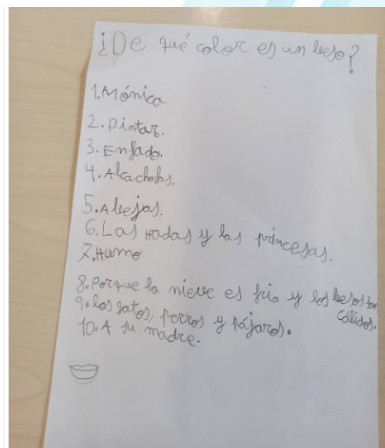 ¿De qué color es un beso?
1. Mónica
2. Pintar.
3. Enfado.
4. Alcachofas.
5. Abejas.
6. Las hadas y las princesas.
7. Humo
8. Porque la nieve es fria y los besos son cálidos.
9. los gatos, perros y pájaros.
10. A su madre.